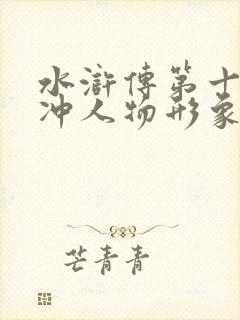 水滸傳第十
沖人物形象
芒青青